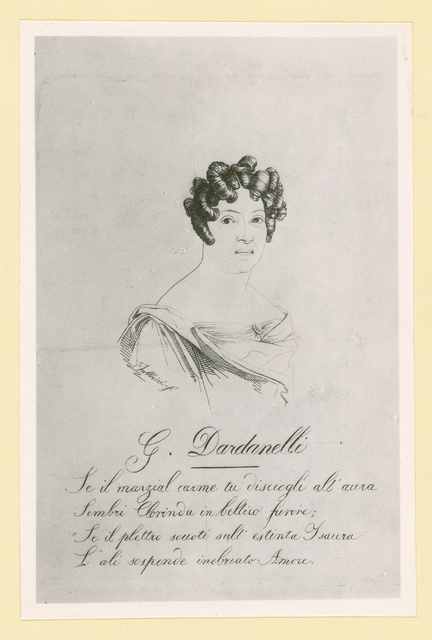 G. Dardanelli
Se il marzial carme tu disciogli all' aura
Sembri Clorinda in bellico furore;
Se il plettro scuoti sull' estinta Isaura
L' ali sospende inebriato Amore.